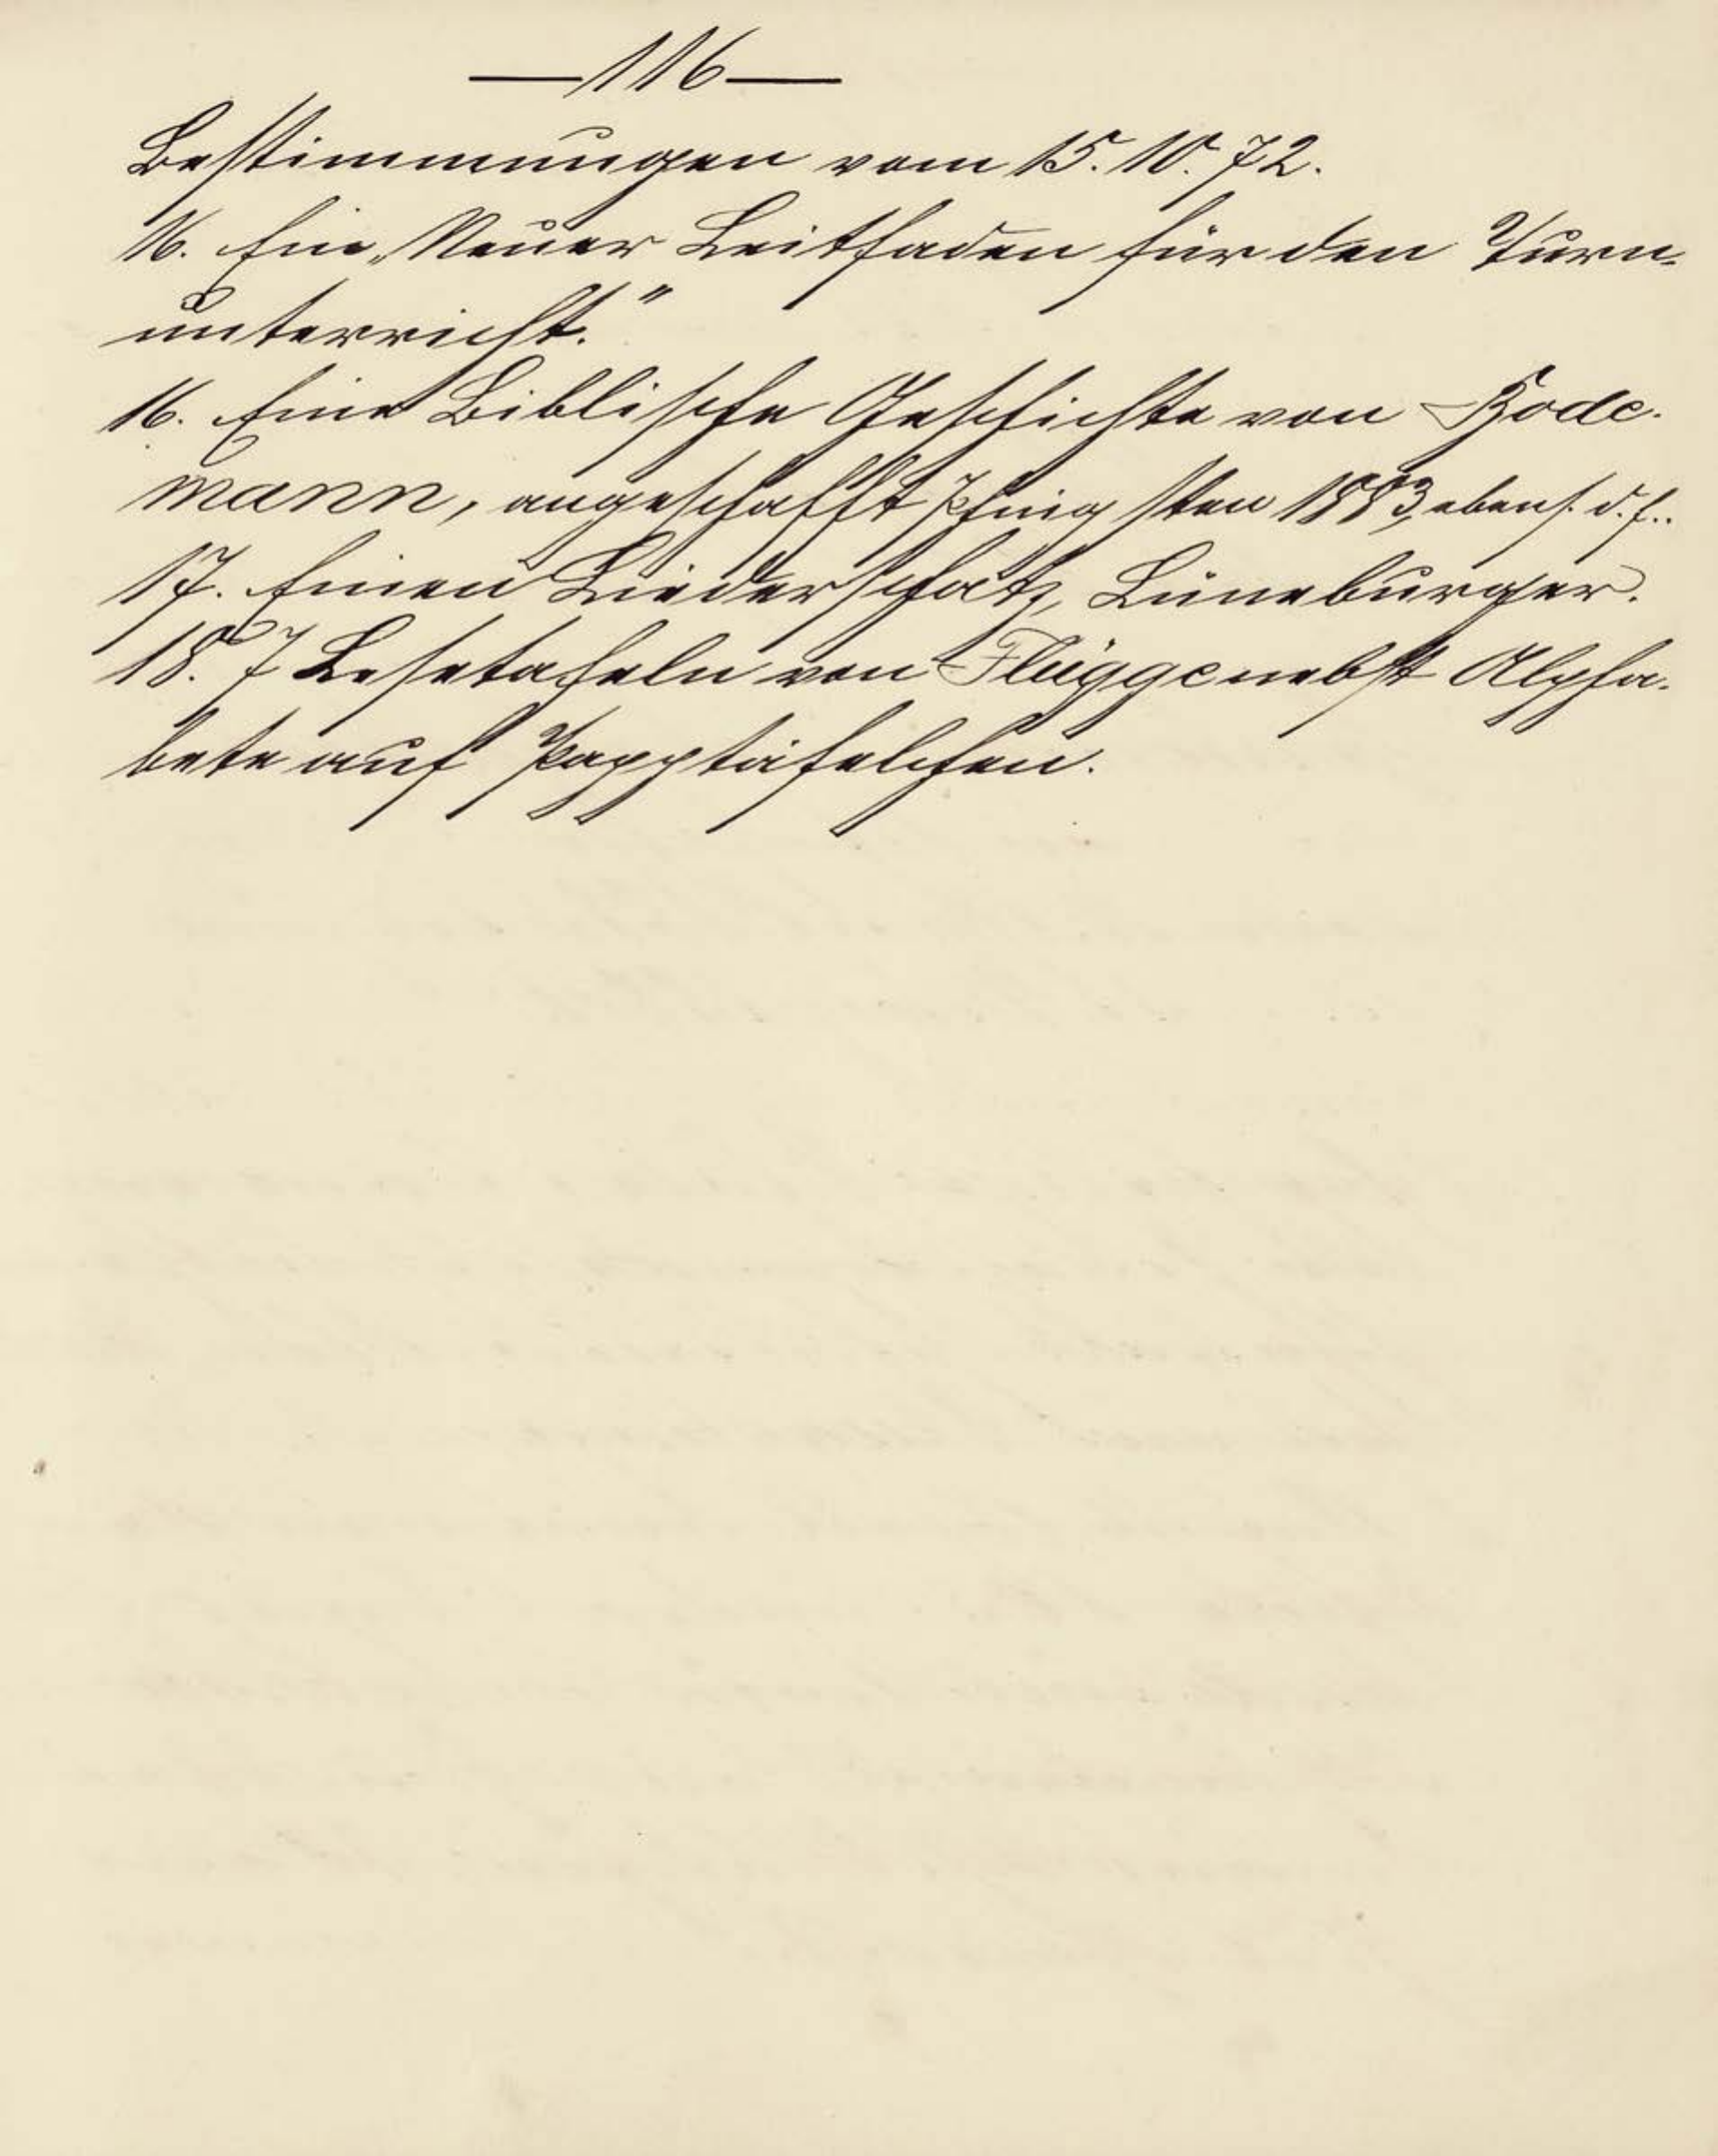 —116—
Bestimmungen vom 15. 10. 72.
16. Ein „Neuer Leitfaden für den Turn-
unterricht."
16. Eine Biblische Geschichte von Bode-
mann, angeschafft Pfingsten 1883, ebens. d. f..
17. Einen Liederschatz, Lüneburger.
18. 7 Lesetafeln von Flügge nebst Alpha-
bete auf Papptäfelchen.